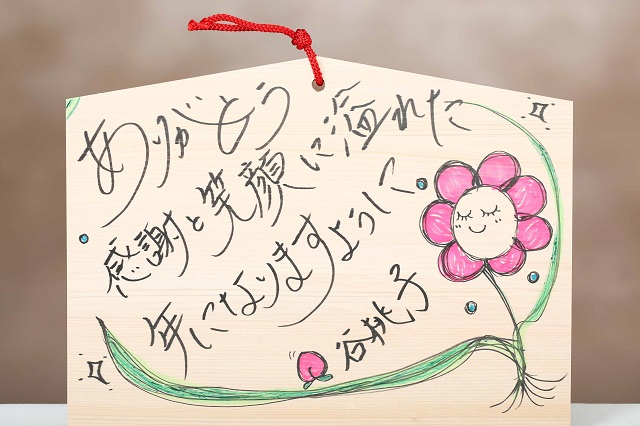 ありがとう
感謝と笑顔に溢れた
年になりますように
谷桃子